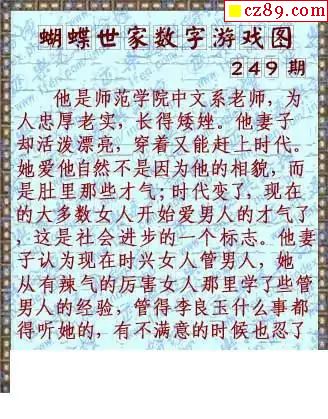 cz89.com
蝴蝶世家数字游戏图
249 期
他是师范学院中文系老师，为
人忠厚老实，长得矮矬。他妻子
却活泼漂亮，穿着又能赶上时代。
她爱他自然不是因为他的相貌，而
是肚里那些才气；时代变了，现在
的大多数女人开始爱男人的才气了
，这是社会进步的一个标志。他妻
子认为现在时兴女人管男人，她
从有辣气的厉害女人那里学了些管
男人的经验，管得李良玉什么事都
得听她的，有不满意的时候也忍了